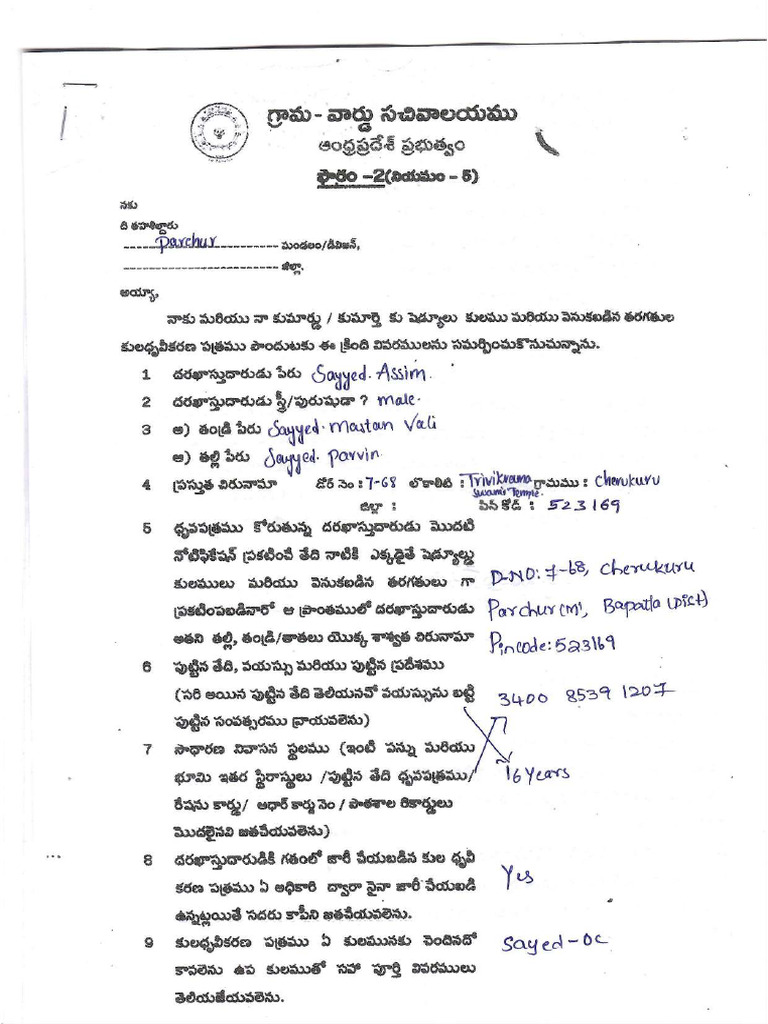 గ్రామ - వార్డు సచివాలయము
ఆంధ్రప్రదేశ్ ప్రభుత్వం
ఫారం -2(నియమం - 5)
నకు
ది తహశిల్దారు
Parchur మండలం/డివిజన్,
జిల్లా.
అయ్యా,
నాకు మరియు నా కుమార్డు / కుమార్తె కు షెడ్యూలు కులము మరియు వెనుకబడిన తరగతుల
కులధృవీకరణ పత్రము పొందుటకు ఈ క్రింది వివరములను సమర్పించుకొనుచున్నాను.
1 దరఖాస్తుదారుడు పేరు Sayyed. Assim.
2 దరఖాస్తుదారుడు స్త్రీ/పురుషుడా ? male.
3 అ) తండ్రి పేరు Sayyed. mastan Vali
ఆ) తల్లి పేరు Sayyed. parvin
4 ప్రస్తుత చిరునామా డోర్ నెం : 7-68 లొకాలిటి : Trivikrama Swami Temple. గ్రామము : Cherukuru
జిల్లా : పిన్ కోడ్ : 523169
5 ధృవపత్రము కోరుతున్న దరఖాస్తుదారుడు మొదటి
నోటిఫికేషన్ ప్రకటించే తేది నాటికి ఎక్కడైతే షెడ్యూల్డు
కులములు మరియు వెనుకబడిన తరగతులు గా D.NO: 7-68, Cherukuru
ప్రకటింపబడినారో ఆ ప్రాంతములో దరఖాస్తుదారుడు Parchur (M), Bapatla (Dist)
అతని తల్లి, తండ్రి/తాతలు యొక్క శాశ్వత చిరునామా Pincode: 523169
6 పుట్టిన తేది, వయస్సు మరియు పుట్టిన ప్రదేశము
(సరి అయిన పుట్టిన తేది తెలియనచో వయస్సును బట్టి 3400 8539 1207
పుట్టిన సంవత్సరము వ్రాయవలెను)
7 సాధారణ నివాసన స్థలము (ఇంటి పన్ను మరియు
భూమి ఇతర స్థిరాస్థులు /పుట్టిన తేది ధృవపత్రము/ 16 Years
రేషను కార్డు/ ఆధార్ కార్డు నెం / పాఠశాల రికార్డులు
మొదలైనవి జతచేయవలెను)
8 దరఖాస్తుదారుడికి గతంలో జారీ చేయబడిన కుల ధృవీ
కరణ పత్రము ఏ అధికారి ద్వారా నైనా జారీ చేయబడి Yes
ఉన్నట్లయితే సదరు కాపీని జతచేయవలెను.
9 కులధృవీకరణ పత్రము ఏ కులమునకు చెందినదో Sayed - OC
కావలెను ఉప కులముతో సహా పూర్తి వివరములు
తెలియజేయవలెను.